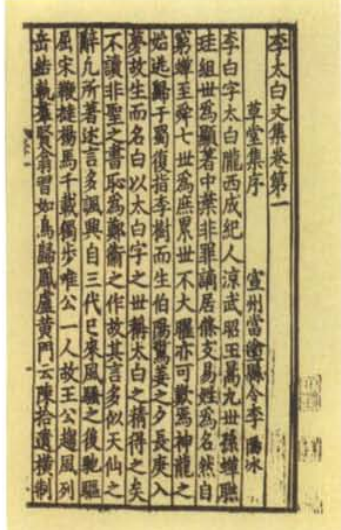 李太白文集卷第一
草堂集序 宣州當塗縣令李陽冰
李白字太白隴西成紀人涼武昭王暠九世孫蟬聯
珪組世爲顯著中葉非罪謫居條支易姓爲名然自
窮蟬至舜七世爲庶累世不大曜亦可歎焉神龍之
始逃歸于蜀復指李樹而生伯陽驚姜之夕長庚入
夢故生而名白以太白字之世稱太白之精得之矣
不讀非聖之書恥爲鄭衛之作故其言多似天仙之
辭凡所著述言多諷興自三代已來風騷之後馳驅
屈宋鞭撻揚馬千載獨步唯公一人故王公趨風列
岳結軌羣賢翕習如鳥歸鳳盧黃門云陳拾遺橫制